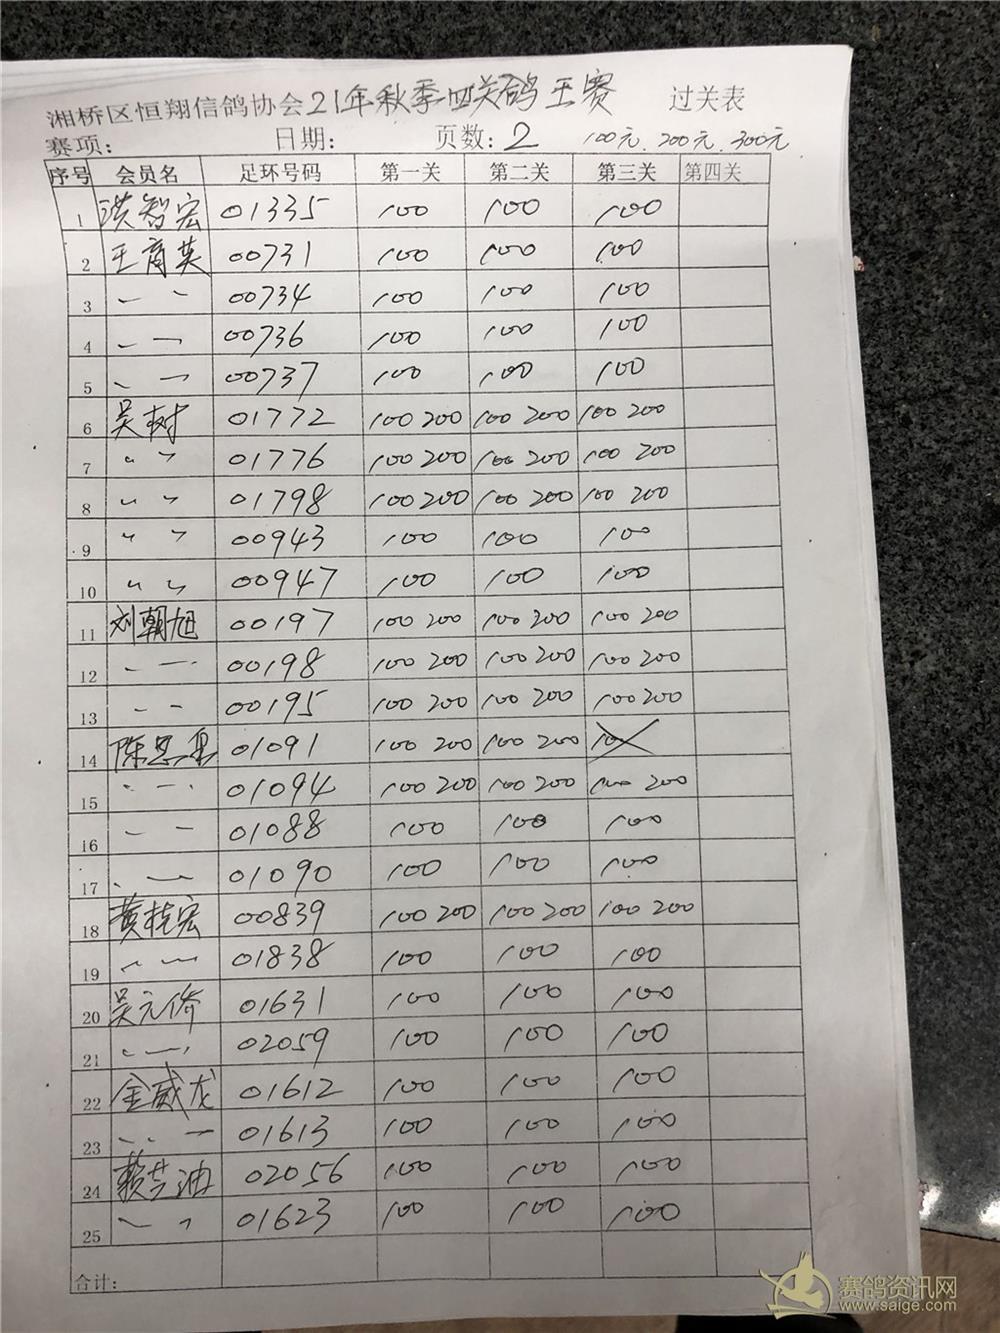 湘桥区恒翔信鸽协会21年秋季四关鸽王赛 过关表
赛项: 日期: 页数:2 100元.200元.300元
序号 会员名 足环号码 第一关 第二关 第三关 第四关
1 洪智宏 01335 100 100 100
2 王育英 00731 100 100 100
3 〃 〃 00734 100 100 100
4 〃 〃 00736 100 100 100
5 〃 〃 00737 100 100 100
6 吴树 01772 100 200 100 200 100 200
7 〃 〃 01776 100 200 100 200 100 200
8 〃 〃 01798 100 200 100 200 100 200
9 〃 〃 00943 100 100 100
10 〃 〃 00947 100 100 100
11 刘朝旭 00197 100 200 100 200 100 200
12 〃 〃 00198 100 200 100 200 100 200
13 〃 〃 00195 100 200 100 200 100 200
14 陈思 01091 100 200 100 200
15 〃 〃 01094 100 200 100 200 100 200
16 〃 〃 01088 100 100 100
17 〃 〃 01090 100 100 100
18 黄桂宏 00839 100 200 100 200 100 200
19 〃 〃 01838 100 100 100
20 吴元侨 01631 100 100 100
21 〃 〃 02059 100 100 100
22 金威龙 01612 100 100 100
23 〃 〃 01613 100 100 100
24 赖 02056 100 100 100
25 〃 〃 01623 100 100 100
合计:
赛鸽资讯网
www.saige.com